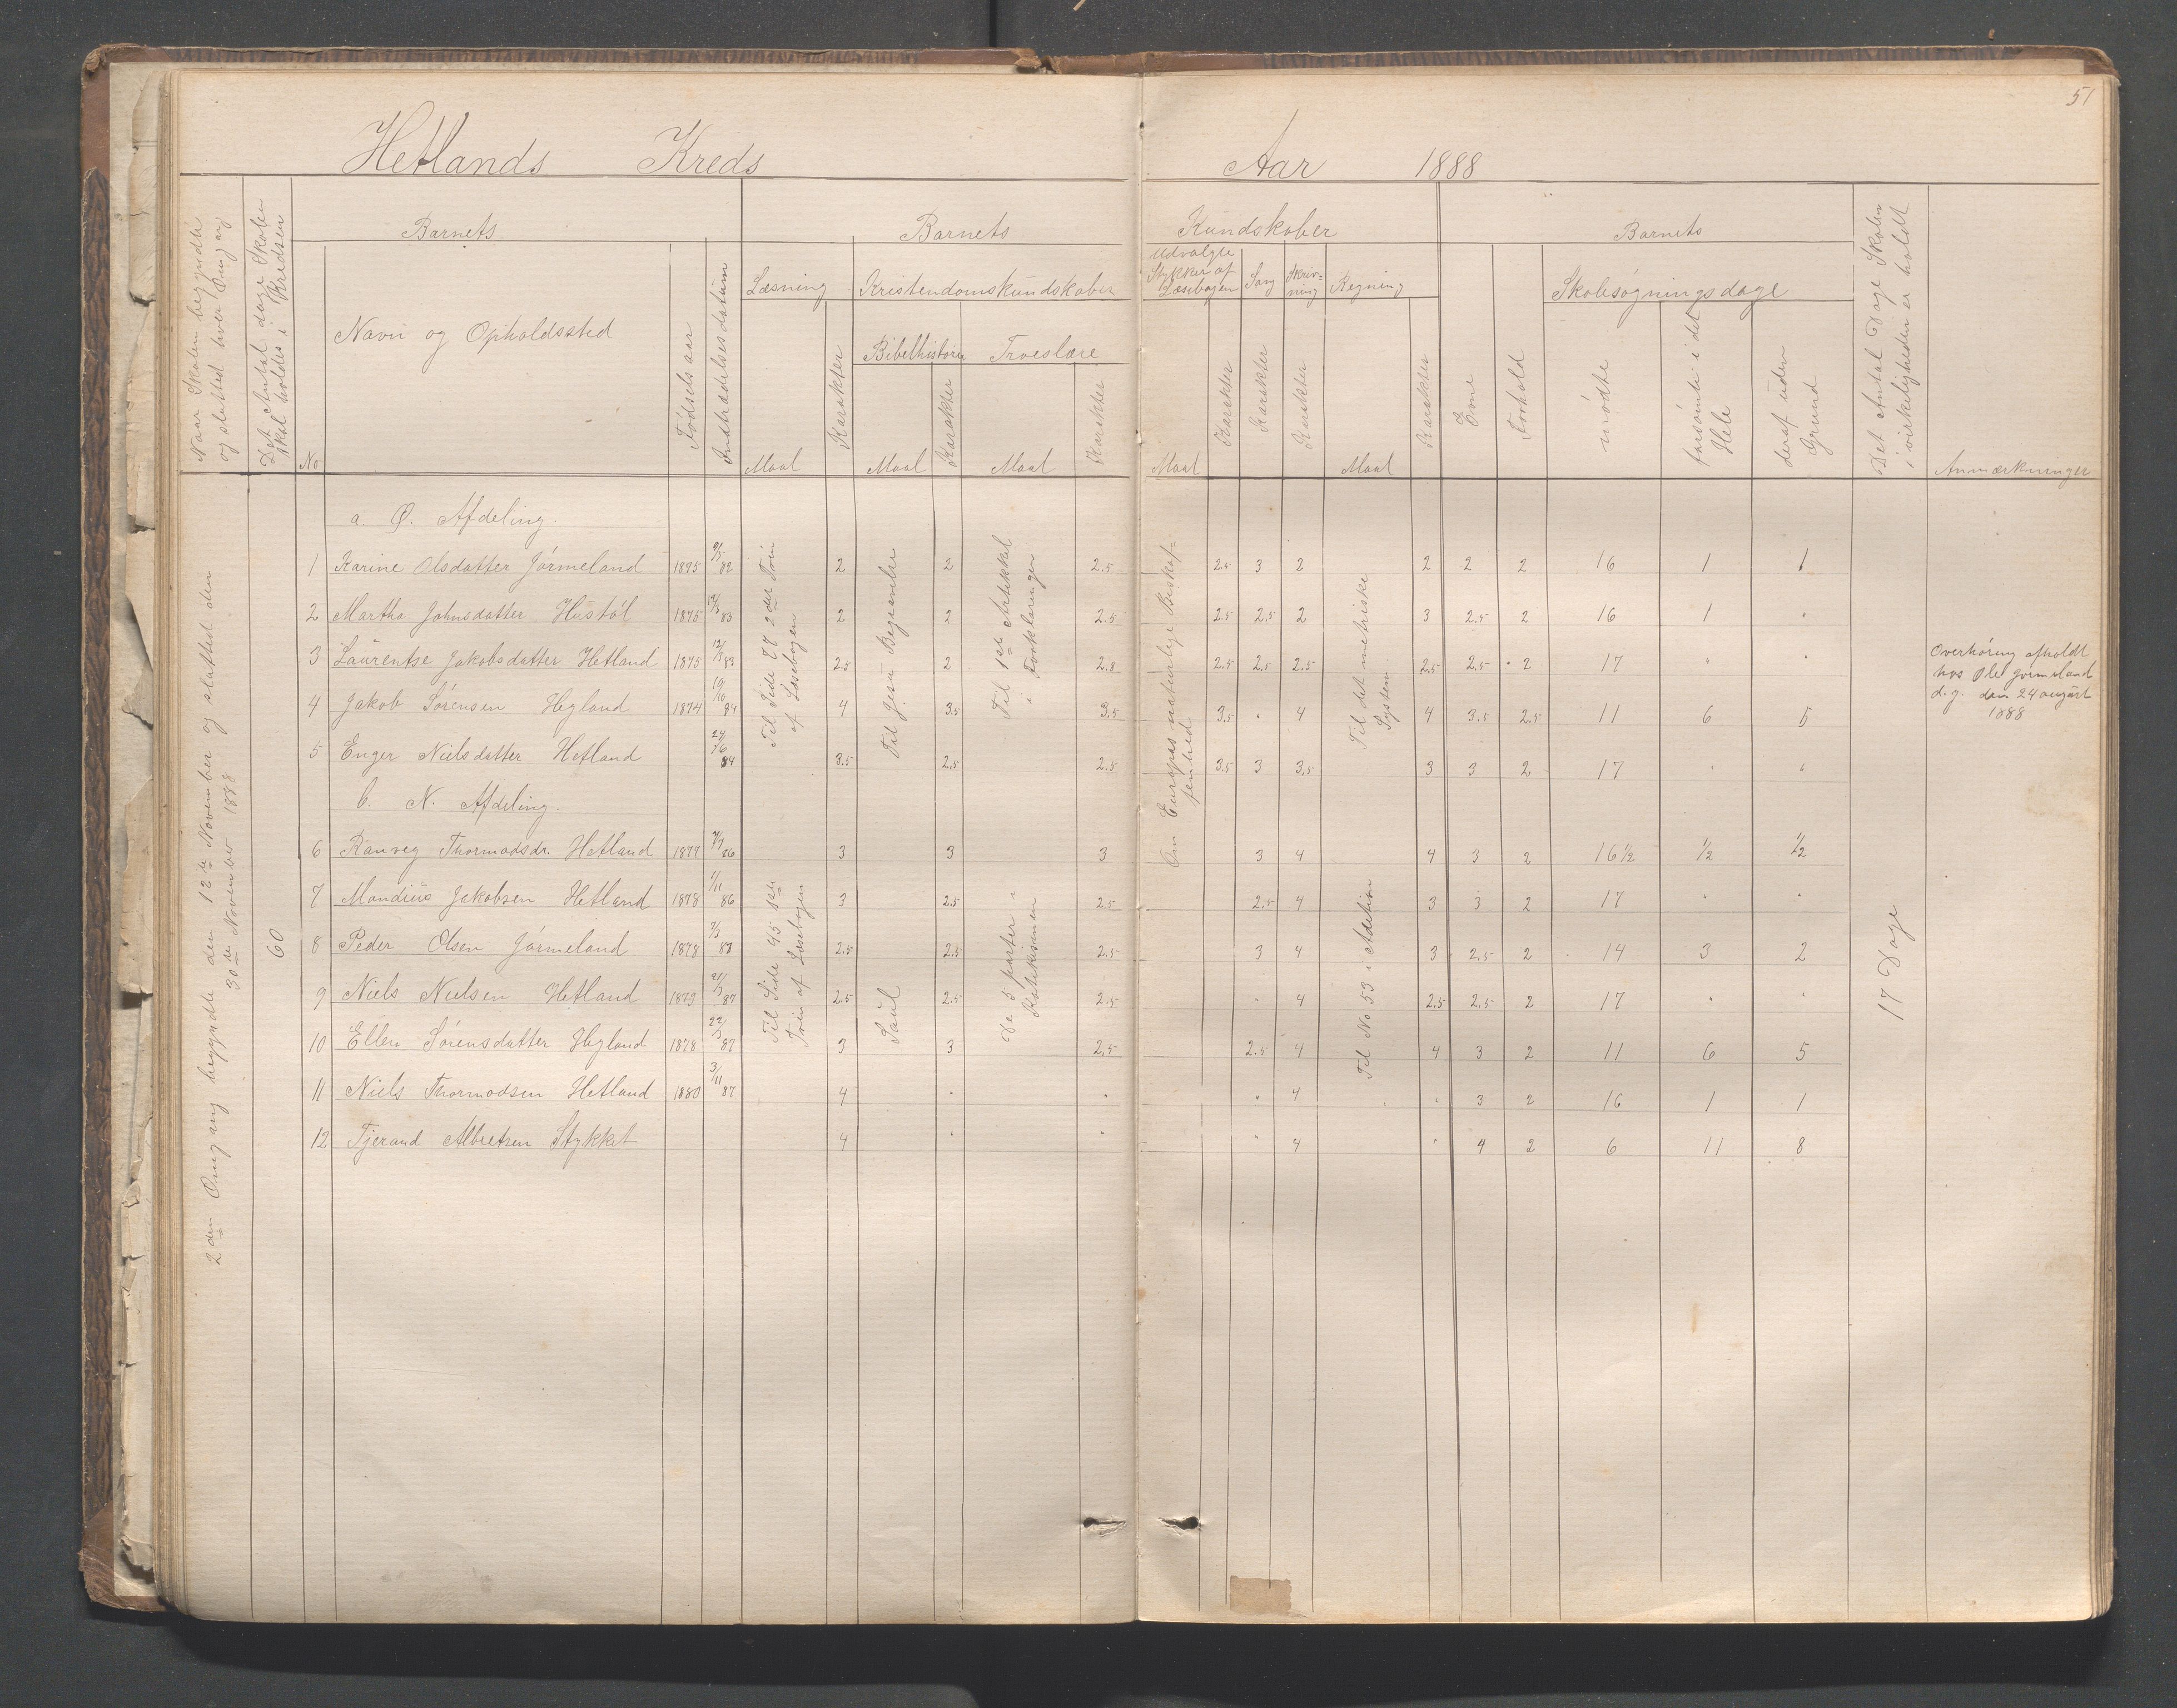 51
Hetlands Kreds
Aar 1888
Naar Skolen begyndte og slutted hver Omgang
Det Antal dage Skolen skal holdes i Kredsen
Barnets
No
Navn og Opholdssted
Fødselsaar
Indtrædelsesdatum
Barnets
Kundskaber
Læsning
Maal
Karakter
Kristendomskundskaber
Bibelhistorie
Maal
Karakter
Troeslære
Maal
Karakter
Udvalgte
Stykker af
Læsebogen
Maal
Karakter
Sang
Karakter
Skriv-
ning
Karakter
Regning
Maal
Karakter
Barnets
Evne
Forhold
Skolesøgningsdage
mødte
forsømte i det
Hele
deraf uden
Grund
Det Antal Dage Skolen
i virkeligheden er holdt
Anmærkninger
2den Omgang begyndte den 12te November og slutted den
30te November 1888
60
a. Ø. Afdeling.
1 Karine Olsdatter Jørmeland 1875 9/5 82 2 2 2.5 2.5 3 2 2 2 2 16 1 1
2 Martha Johnsdatter Hustøl 1875 83 2 2 2.5 2.5 2.5 2 3 2.5 2 16 1 "
3 Laurentse Jakobsdatter Hetland 1875 83 2.5 2 2.8 2.5 2.5 2.5 2.5 2.5 2 17 " "
4 Jakob Sørensen Hegland 1874 10/10 84 4 3.5 3.5 3.5 " 4 4 3.5 2.5 11 6 5
5 Enger Nielsdatter Hetland 24/6 84 3.5 2.5 2.5 3.5 3 3.5 3 3 2 17 " "
b. N. Afdeling.
6 Ranveg Thormodsdr. Hetland 1877 86 3 3 3 3 4 4 3 2 16 1/2 1/2 1/2
7 Mandius Jakobsen Hetland 1878 1/11 86 3 2.5 2.5 2.5 4 3 3 2 17 " "
8 Peder Olsen Jørmeland 1878 2.5 2.5 2.5 3 4 3 2.5 2 14 3 2
9 Niels Nielsen Hetland 1879 87 2.5 2.5 2.5 " 4 2.5 2.5 2 17 " "
10 Ellen Sørensdatter Hegland 1878 87 3 3 2.5 2.5 4 4 3 2 11 6 5
11 Niels Thormodsen Hetland 1880 3/11 87 4 " " " 4 " 3 2 16 1 1
12 Tjerand Albretsen Stykket 4 " " " 4 " 4 2 6 11 8
Til Side 77 2det Trin
af Læsebogen
Til Jesu Begravelse
Til 1ste Artikkel
i Forklaringen
Om Europas naturlige Beskaf=
fenhed
Til det metriske
System
Til Side 45 1ste
Trin af Læsebogen
Saul
De 5 parter i
Katekismen
Til No 53 i Adition
17 Dage
Overhøring afholdt
hos Ole Jørmeland
d.y. den 24 august
1888